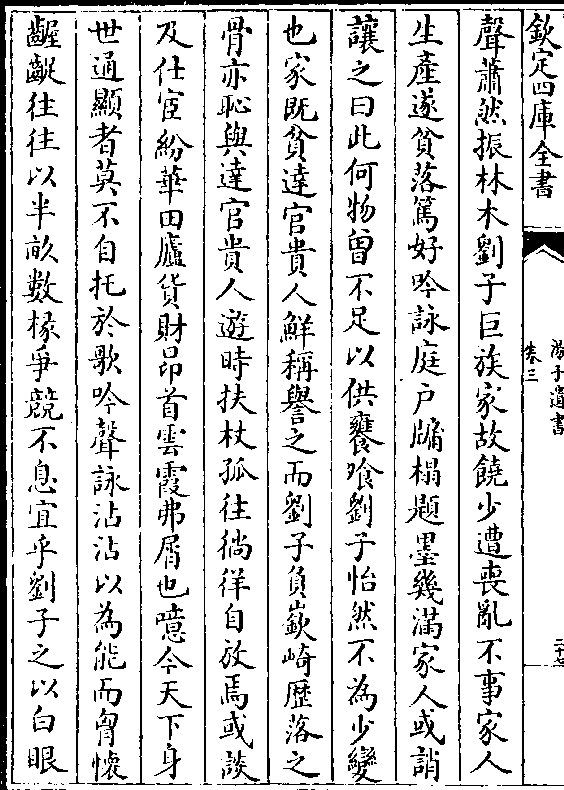 欽定四庫全書
湯子遺書
卷三
聲蕭然振林木劉子巨族家故饒少遭喪亂不事家人
生產遂貧落篤好吟詠庭戶牖榻題墨幾滿家人或誚
讓之曰此何物曾不足以供饔飱劉子怡然不為少變
也家既貧達官貴人鮮稱譽之而劉子負嶔崎歷落之
骨亦恥與達官貴人遊時扶杖孤往徜徉自放焉或談
及仕宦紛華田廬貨財昂首雲霞弗屑也噫今天下身
世通顯者莫不自托於歌吟聲詠沾沾以為能而胷懷
齷齪往往以半畝數椽爭競不息宜乎劉子之以白眼